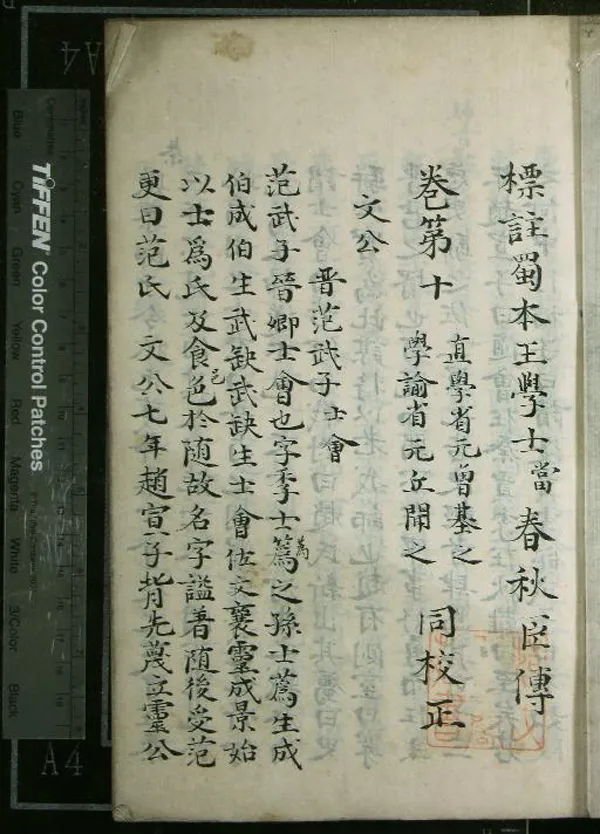 標註蜀本王學士當春秋臣傳
卷第十
直學省元曾基之
學諭省元丘聞之
同校正
文公
晉范武子士會
范武子晉卿士會也字季士蒍之孫士蒍生成
伯成伯生武缺武缺生士會佐文襄靈成景始
以士為氏及食邑於随故名字謚著随後受范
更曰范氏 文公七年趙宣子背先蔑立靈公
TIFFEN Color Control Patches
Blue
Cyan
Green
Yellow
Red
Magenta
White
3/Color
Black
A4
A4